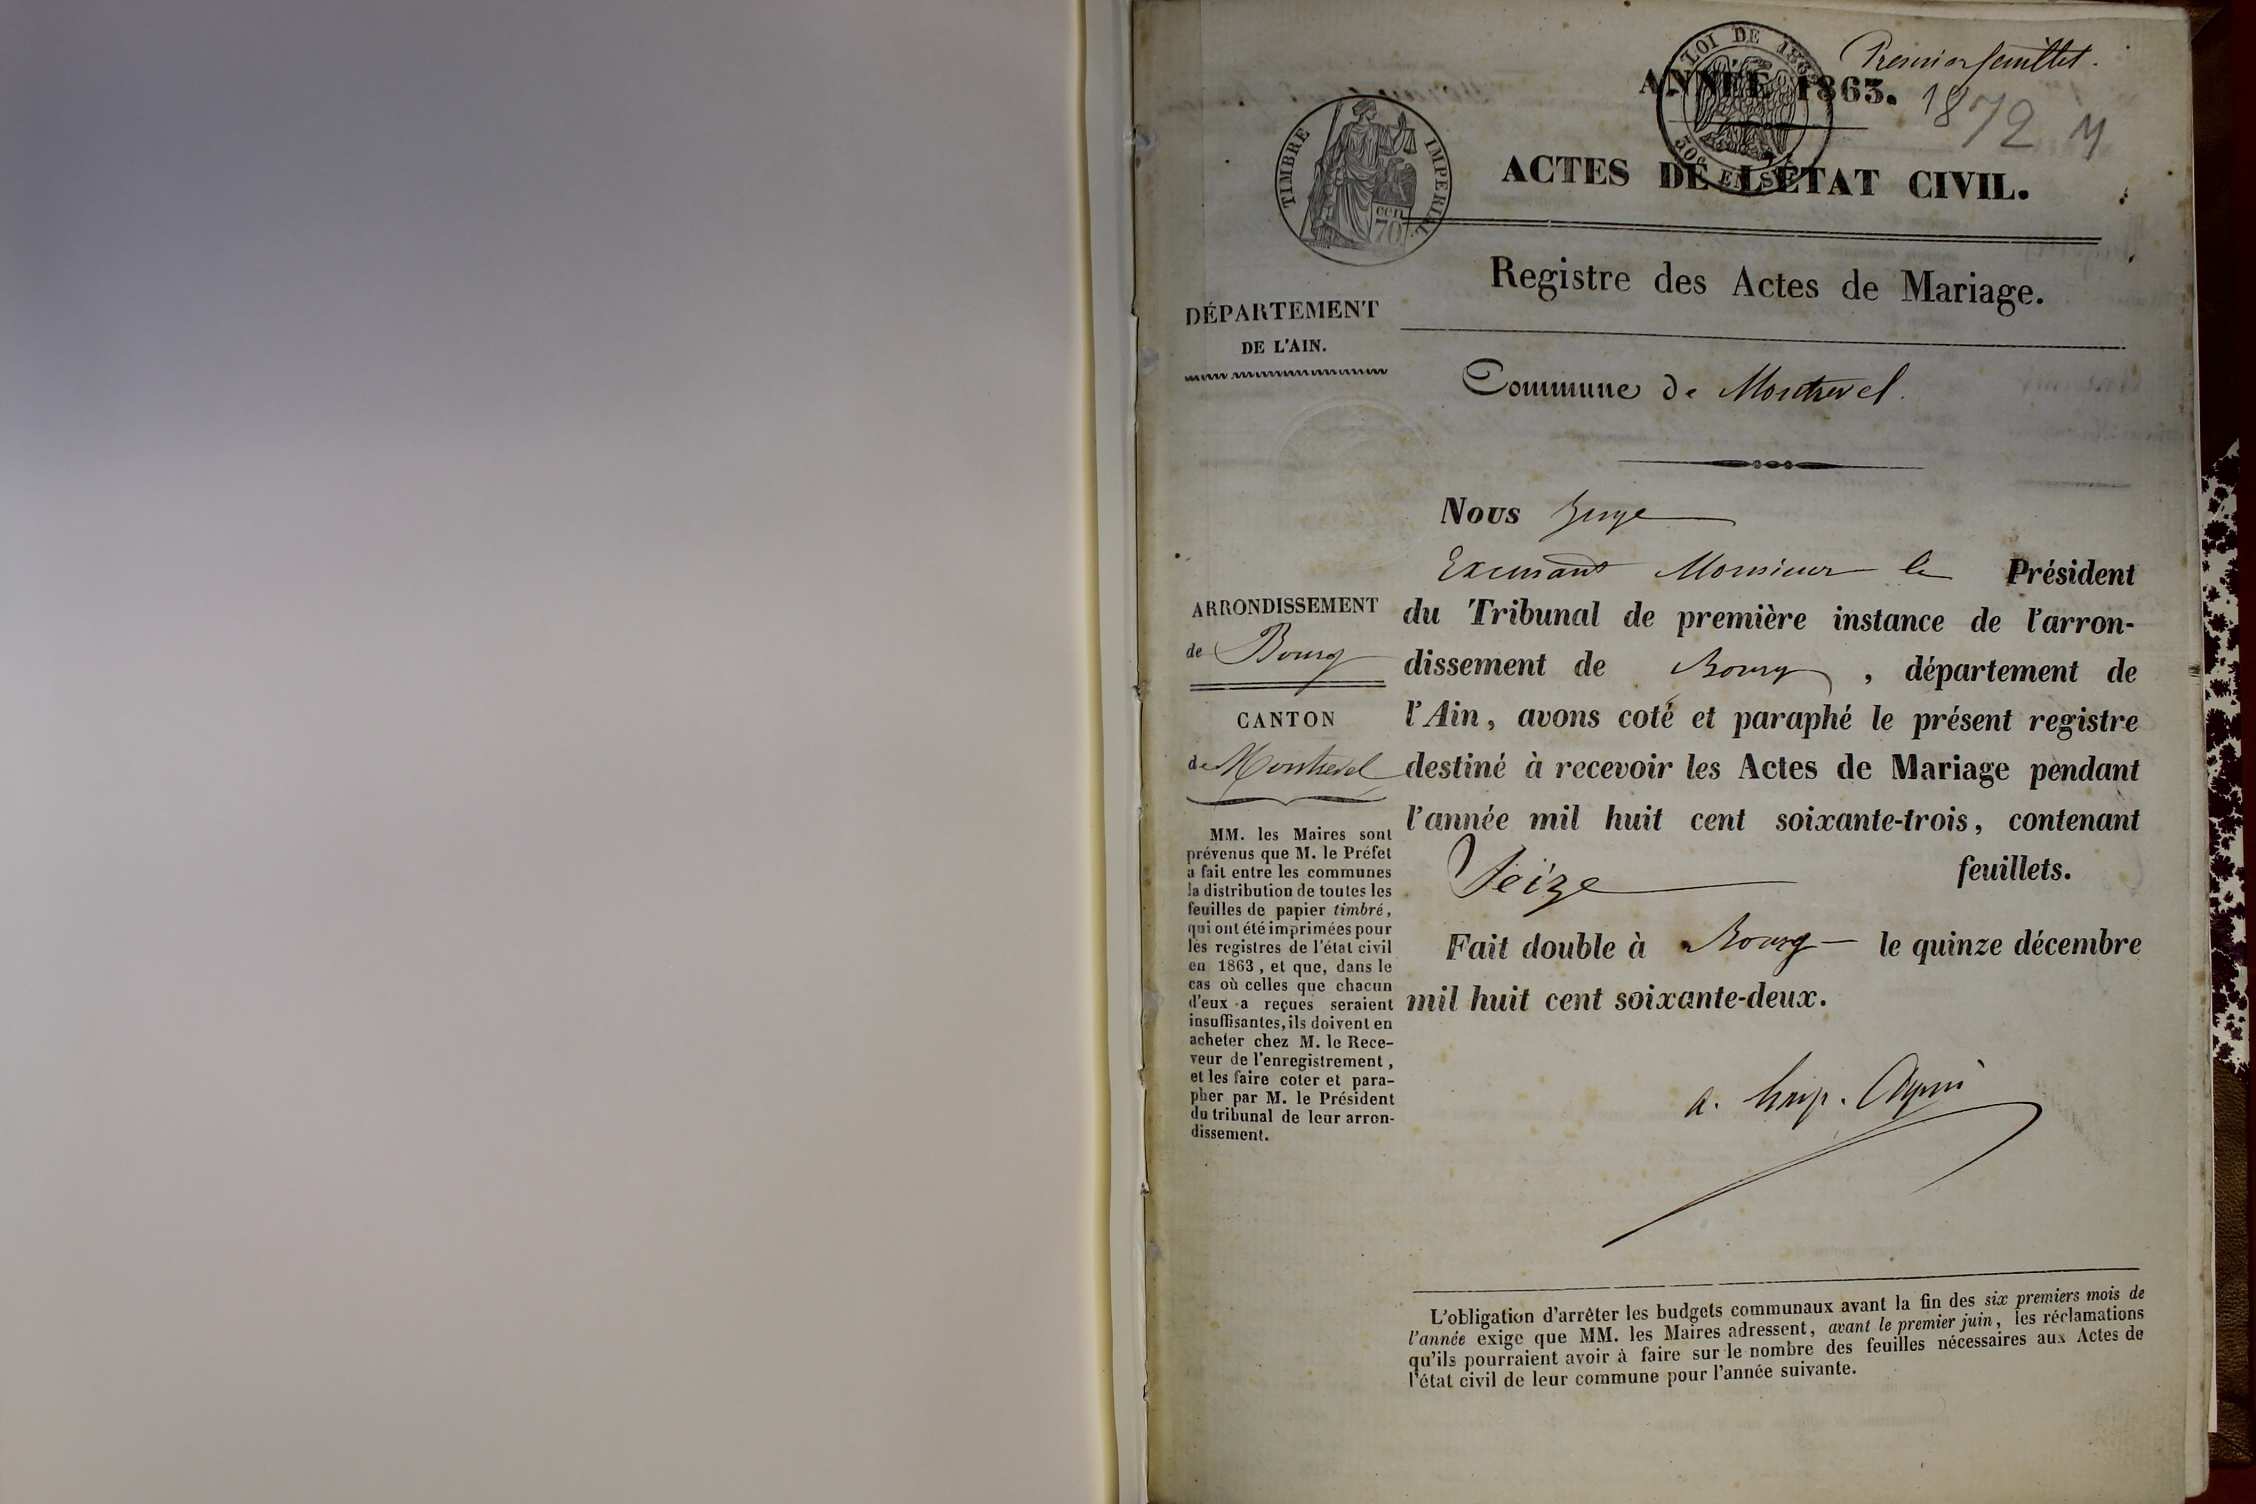 Premier feuillet.
LOI DE 1862
ANNÉE 1863.
1872 M
50c EN SUS
TIMBRE IMPERIAL
cen 70
ACTES DE L'ÉTAT CIVIL.
Registre des Actes de Mariage.
DÉPARTEMENT
DE L'AIN.
Commune de Montrevel.
ARRONDISSEMENT
de Bourg
CANTON
de Montrevel
MM. les Maires sont
prévenus que M. le Préfet
a fait entre les communes
la distribution de toutes les
feuilles de papier timbré,
qui ont été imprimées pour
les registres de l'état civil
en 1863, et que, dans le
cas où celles que chacun
d'eux a reçues seraient
insuffisantes, ils doivent en
acheter chez M. le Rece-
veur de l'enregistrement,
et les faire coter et para-
pher par M. le Président
du tribunal de leur arron-
dissement.
Nous Juge
Excusant Monsieur le Président
du Tribunal de première instance de l'arron-
dissement de Bourg, département de
l'Ain, avons coté et paraphé le présent registre
destiné à recevoir les Actes de Mariage pendant
l'année mil huit cent soixante-trois, contenant
Seize feuillets.
Fait double à Bourg le quinze décembre
mil huit cent soixante-deux.
L'obligation d'arrêter les budgets communaux avant la fin des six premiers mois de
l'année exige que MM. les Maires adressent, avant le premier juin, les réclamations
qu'ils pourraient avoir à faire sur le nombre des feuilles nécessaires aux Actes de
l'état civil de leur commune pour l'année suivante.